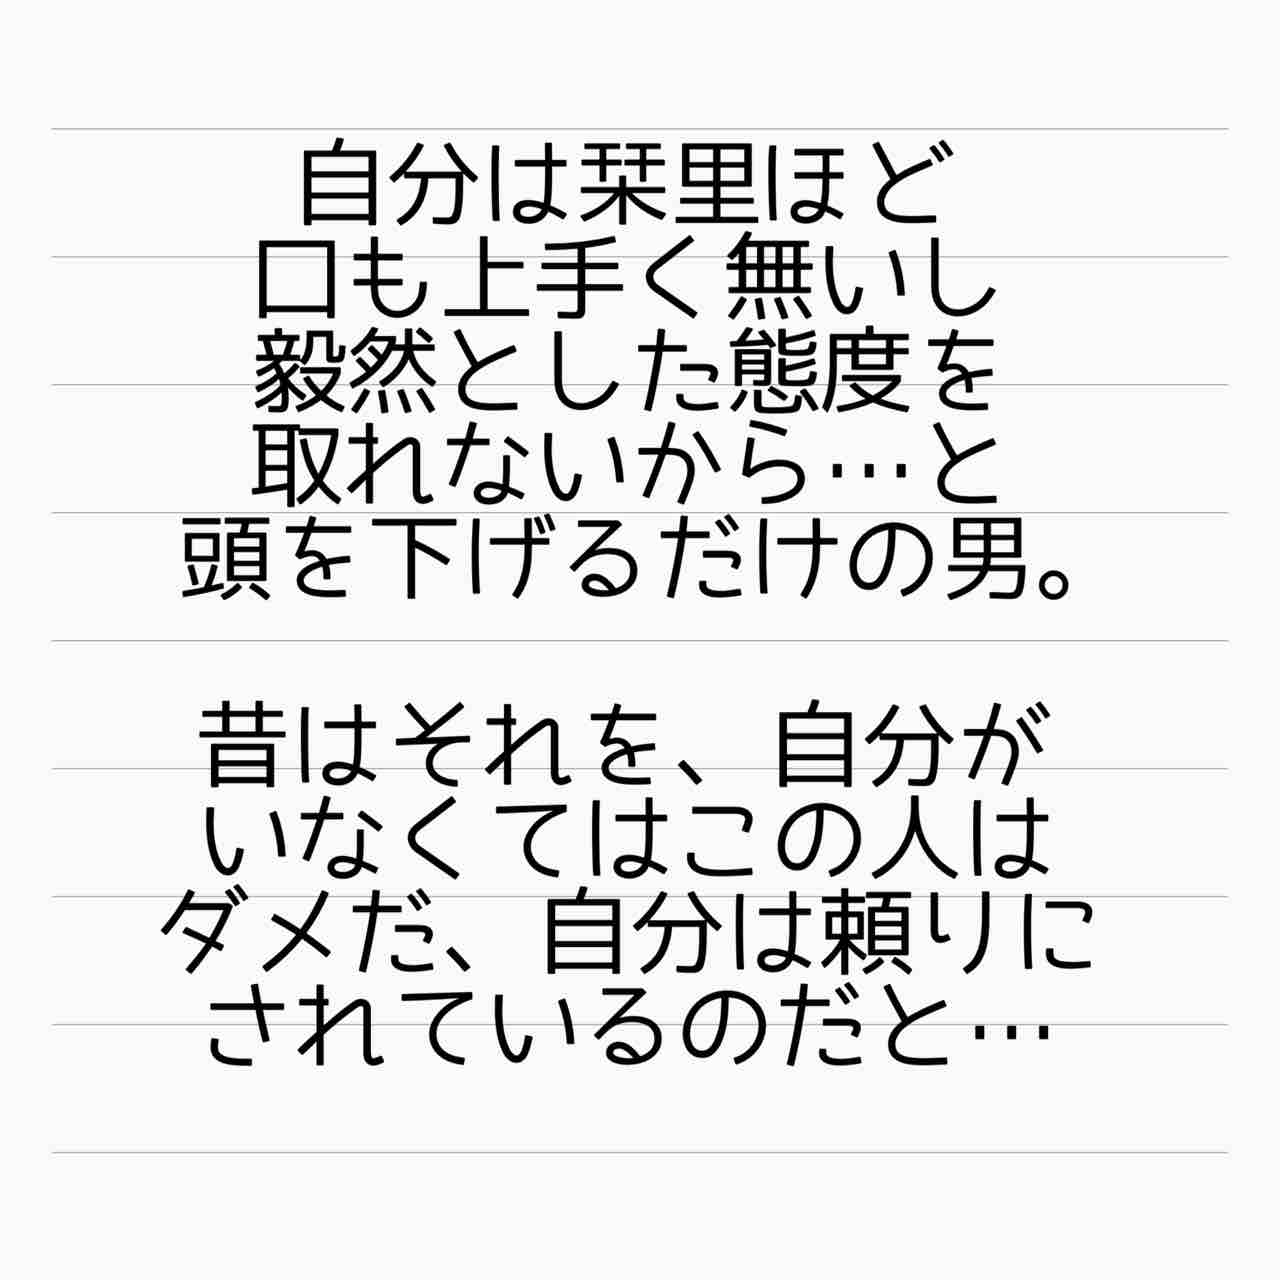 自分は栞里ほど
口も上手く無いし
毅然とした態度を
取れないから…と
頭を下げるだけの男。
昔はそれを、自分が
いなくてはこの人は
ダメだ、自分は頼りに
されているのだと…